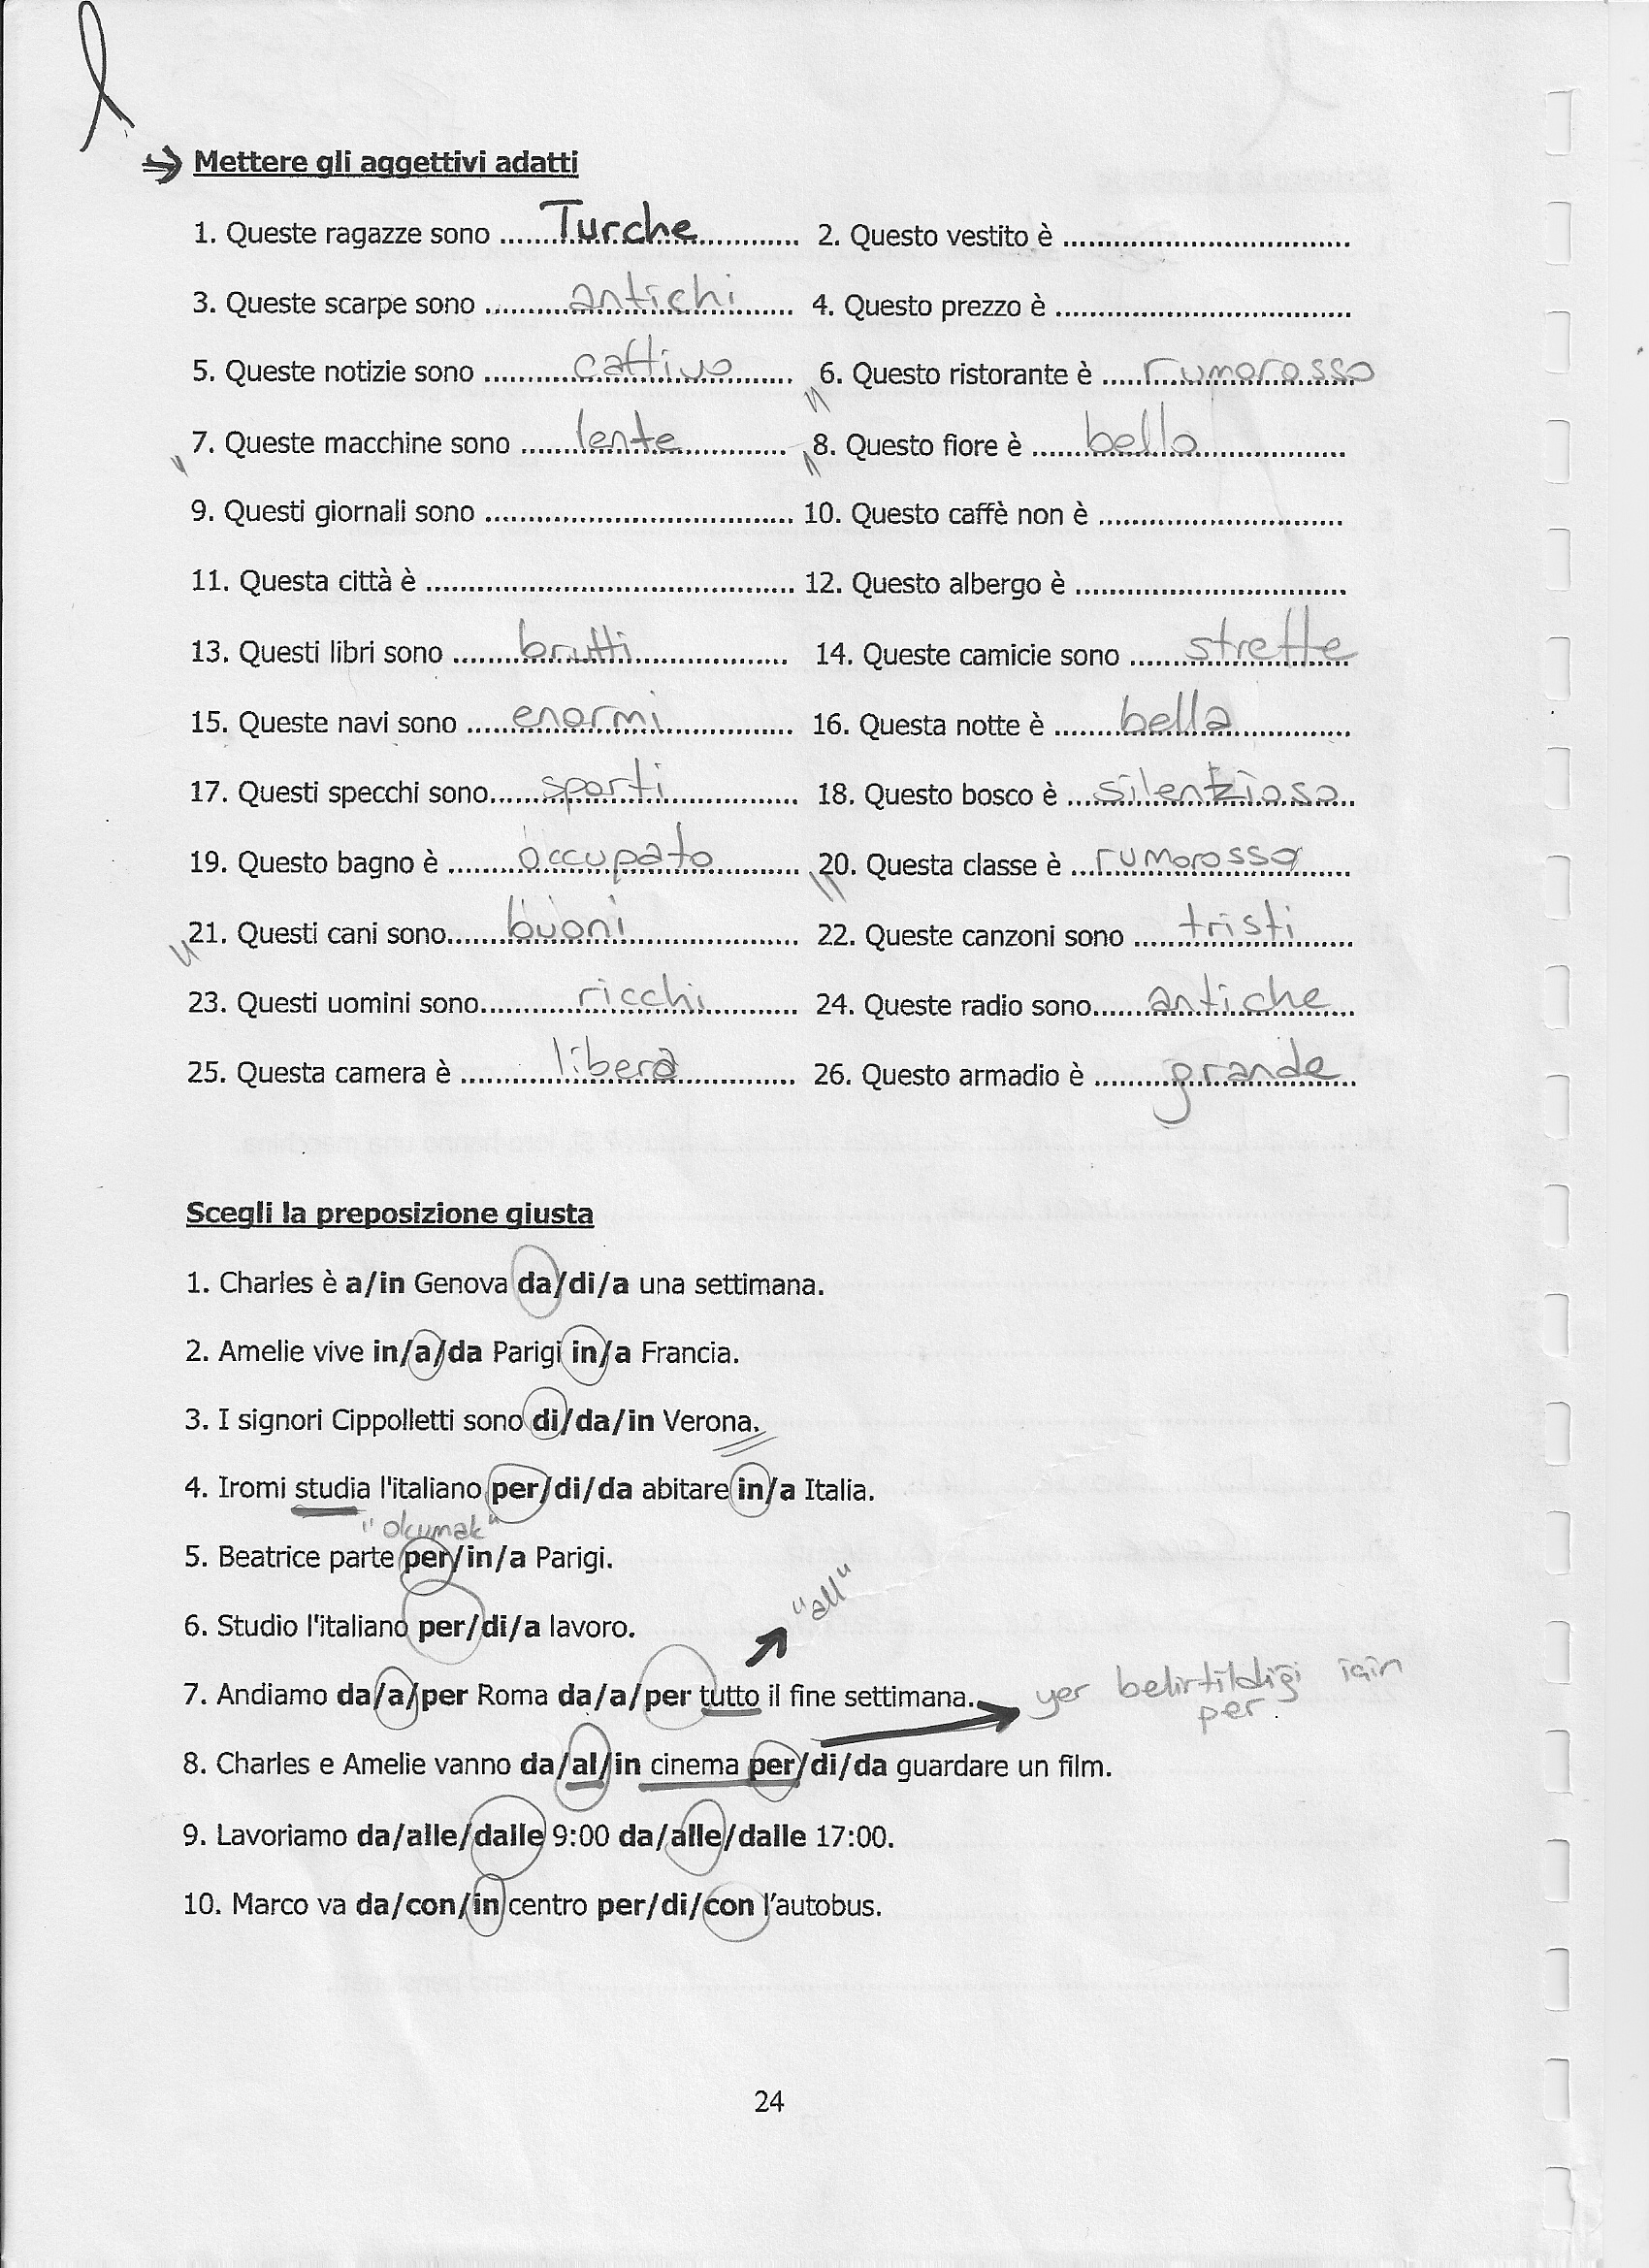 Mettere gli aggettivi adatti
1. Queste ragazze sono ...... Turche ...... 2. Questo vestito è ......
3. Queste scarpe sono ...... antichi ...... 4. Questo prezzo è ......
5. Queste notizie sono ...... cattivo ...... 6. Questo ristorante è ...... rumorosso
7. Queste macchine sono ...... lente ...... 8. Questo fiore è ...... bello ......
9. Questi giornali sono ...... 10. Questo caffè non è ......
11. Questa città è ...... 12. Questo albergo è ......
13. Questi libri sono ...... brutti ...... 14. Queste camicie sono ...... strette
15. Queste navi sono ...... enormi ...... 16. Questa notte è ...... bella ......
17. Questi specchi sono...... sporti ...... 18. Questo bosco è ...... silenzioso
19. Questo bagno è ...... occupato ...... 20. Questa classe è ...... rumorossa ......
21. Questi cani sono...... buoni ...... 22. Queste canzoni sono ...... tristi ......
23. Questi uomini sono...... ricchi ...... 24. Queste radio sono...... antiche ......
25. Questa camera è ...... libera ...... 26. Questo armadio è ...... grande ......
Scegli la preposizione giusta
1. Charles è a/in Genova da/di/a una settimana.
2. Amelie vive in/a/da Parigi in/a Francia.
3. I signori Cippolletti sono di/da/in Verona.
4. Iromi studia l'italiano per/di/da abitare in/a Italia.
"okumak"
5. Beatrice parte per/in/a Parigi.
"all"
6. Studio l'italiano per/di/a lavoro.
7. Andiamo da/a/per Roma da/a/per tutto il fine settimana. yer belirtildiği için
per.
8. Charles e Amelie vanno da/al/in cinema per/di/da guardare un film.
9. Lavoriamo da/alle/dalle 9:00 da/alle/dalle 17:00.
10. Marco va da/con/in centro per/di/con l'autobus.
24